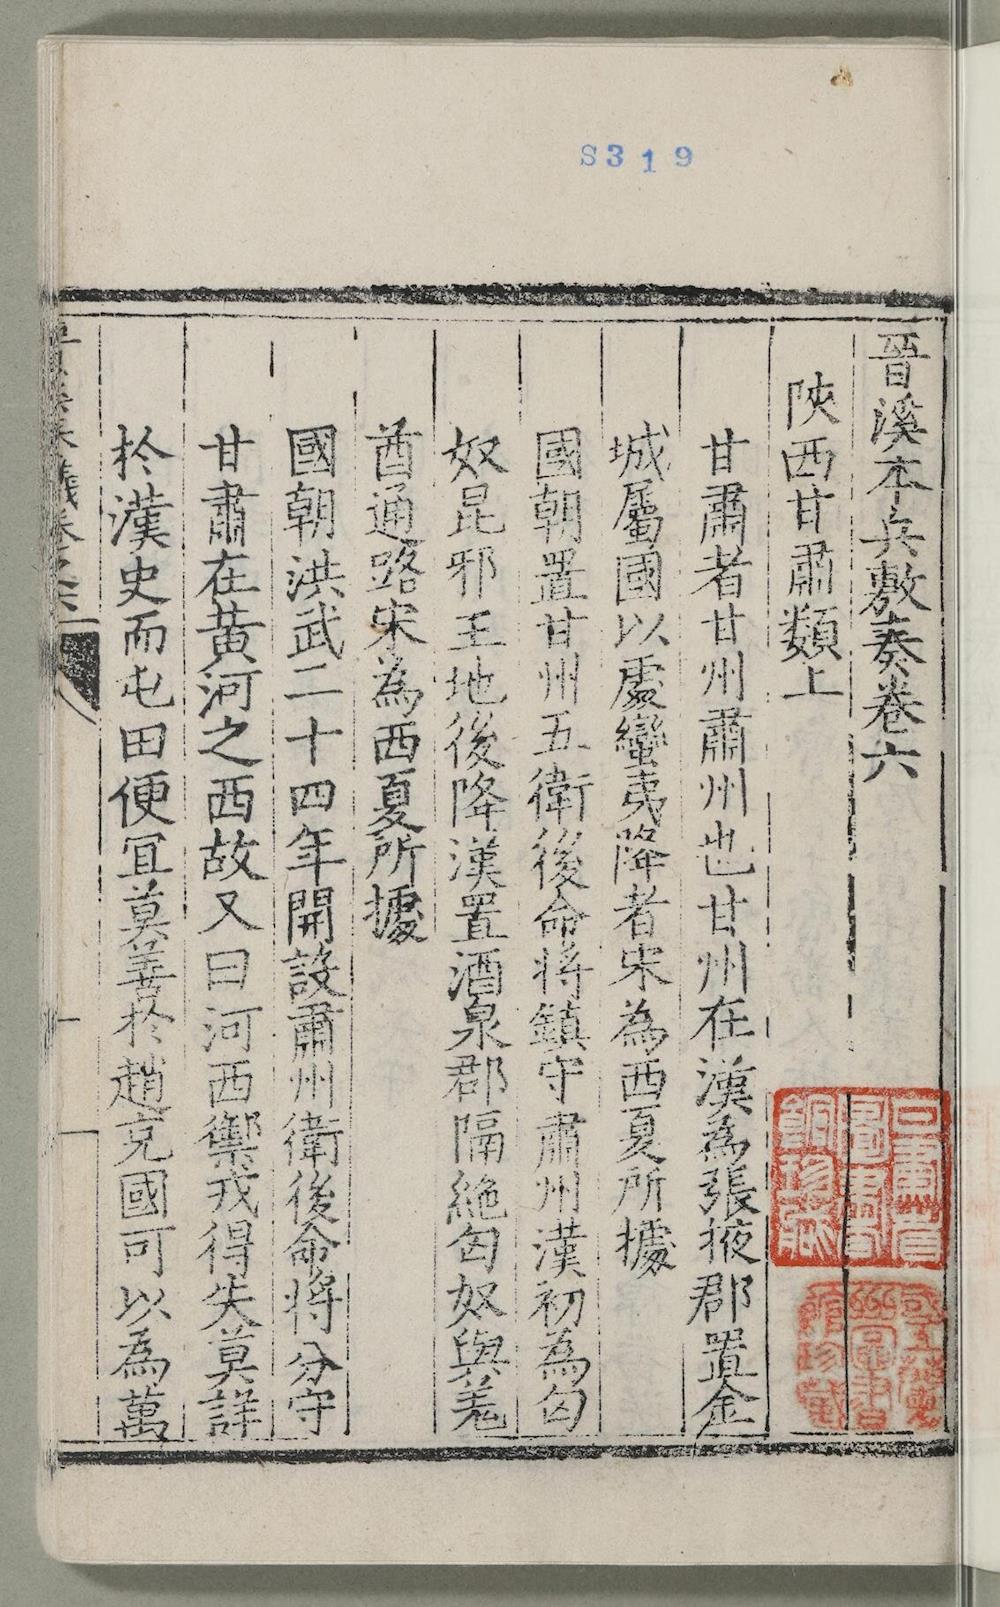 S319
晉溪本兵敷奏卷六
陝西甘肅類上
甘肅者甘州肅州也甘州在漢為張掖郡置金
城屬國以處蠻夷降者宋為西夏所據
國朝置甘州五衛後命将鎮守肅州漢初為匈
奴昆邪王地後降漢置酒泉郡隔絶匈奴與羌
酋通路宋為西夏所據
國朝洪武二十四年開設肅州衛後命将分守
甘肅在黄河之西故又曰河西禦戎得失莫詳
於漢史而屯田便宜莫善於趙充國可以為萬